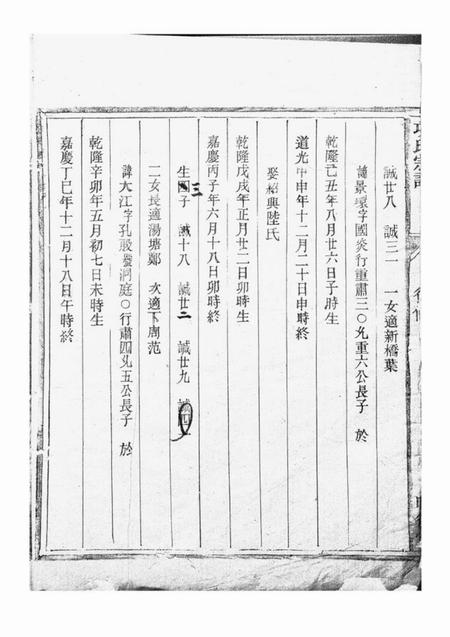 誠廿八 誠三二 一女適新橋葉
諱景環字國炎行重肅三〇允重六公長子 於
乾隆己丑年八月廿六日子時生
道光甲申年十二月二十日申時終
娶紹興陸氏
乾隆戊戌年正月廿二日卯時生
嘉慶丙子年六月十八日卯時終
生三子 誠十八 誠廿二 誠廿九
二女長適湯塘鄭 次適下周范
諱大江字孔殷號洞庭〇行肅四允五公長子 於
乾隆辛卯年五月初七日未時生
嘉慶丁巳年十二月十八日午時終